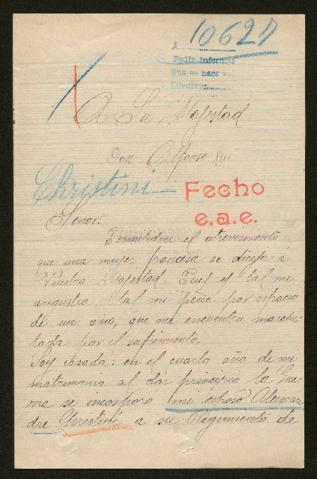 10627
Pedir informe
Que se hace
A Su Majestad
Don Alfonso XIII
Christini
Fecho
e.a.e.
Señor:
el atrevimiento
que una mujer francesa se dirije a
Vuestra Majestad. Cruel y tal mi
angustia, tal mi pena por espacio
de un año, que me encuentro
por el sufrimiento.
Soy casada: en el cuarto año de mi
matrimonio al dar principio la Gue-
rra se incorporo mi esposo Alexan-
dre Christini a su Regimiento de